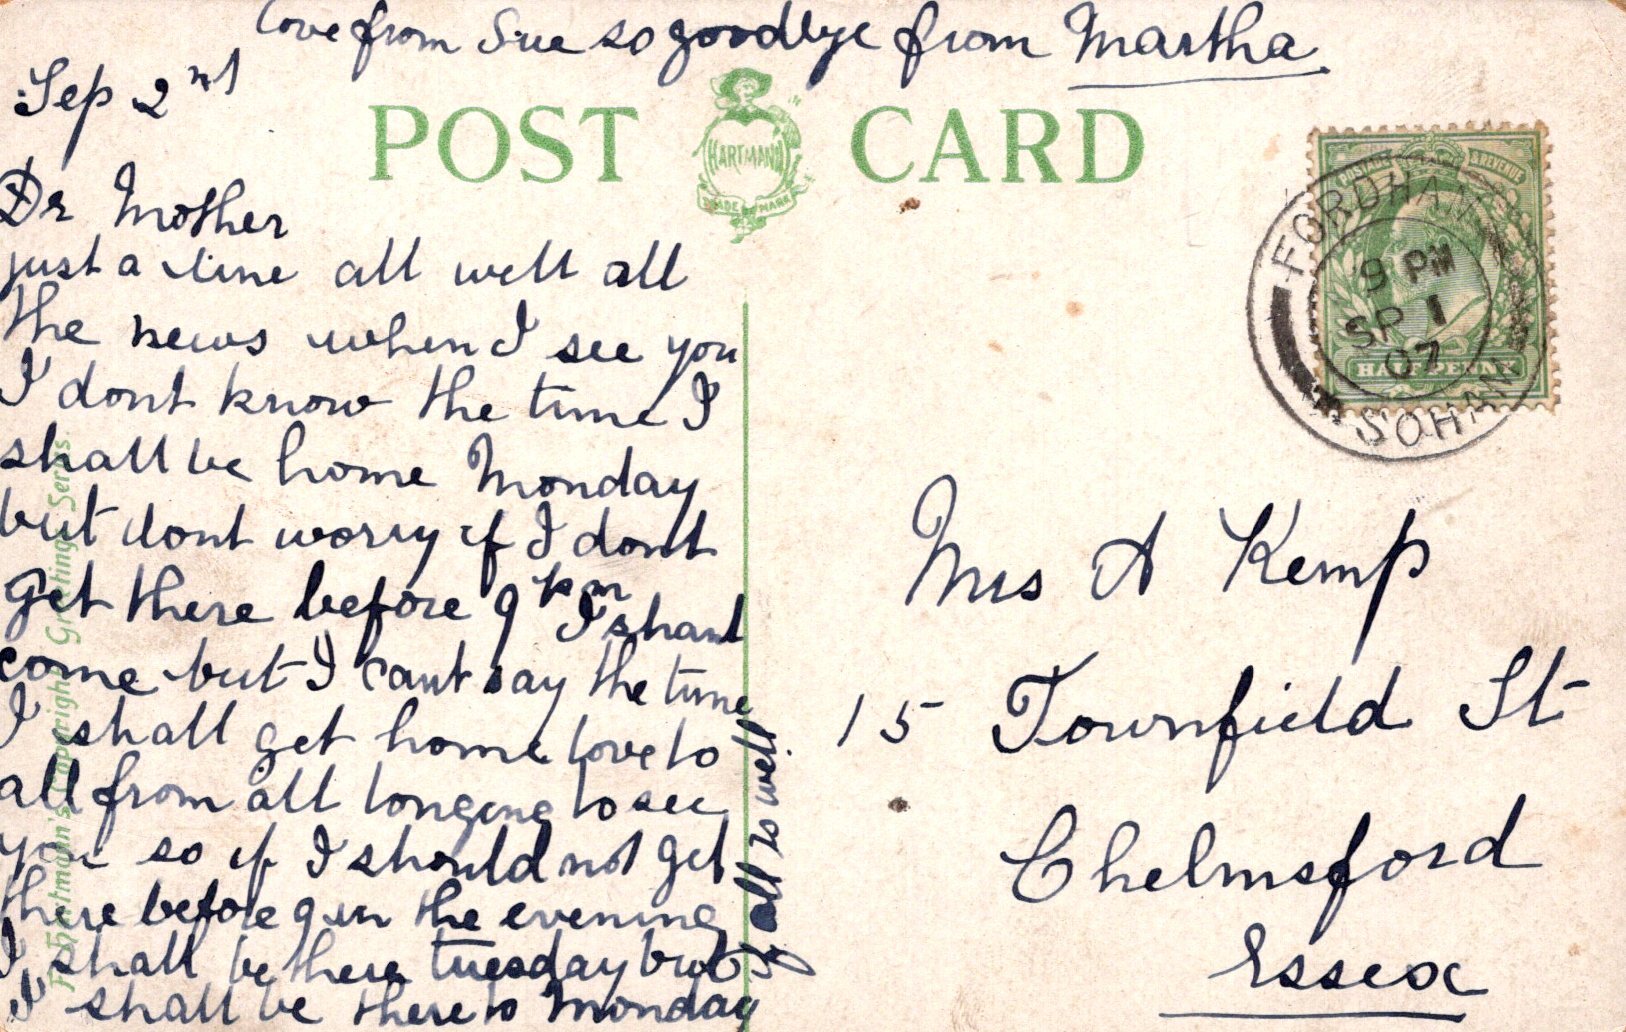 love from Sue so goodbye from Martha
Sep 2nd
POST CARD
HARTMANN
TRADE MARK
POSTAGE & REVENUE
HALFPENNY
FORDHAM
9 PM
SP 1
07
SOHAM
Dr Mother
just a line all well all
the news when I see you
I dont know the time I
shall be home Monday
but dont worry if I dont
get there before 9 pm I shant
come but I cant say the time
I shall get home love to
all from all longing to see
you so if I should not get
there before 9 in the evening
I shall be there tuesday but
I shall be there to Monday
if all is well.
Hartmann's Copyright Greetings Series
Mrs A Kemp
15 Townfield St
Chelmsford
Essex